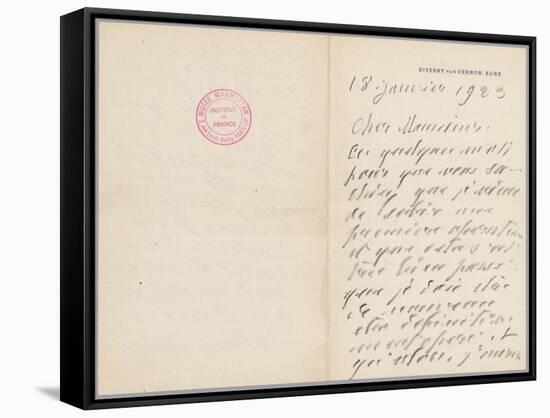 MUSÉE MARMOTTAN
INSTITUT
DE
FRANCE
2, rue Louis-Boilly, PARIS
GIVERNY PAR VERNON, EURE
18 janvier 1923
Cher Monsieur
Ces quelques mots
pour que vous sa-
chiez que je viens
de subir une
première opération
et que cela s'est
très bien passé
que je dois être
de nouveau
et